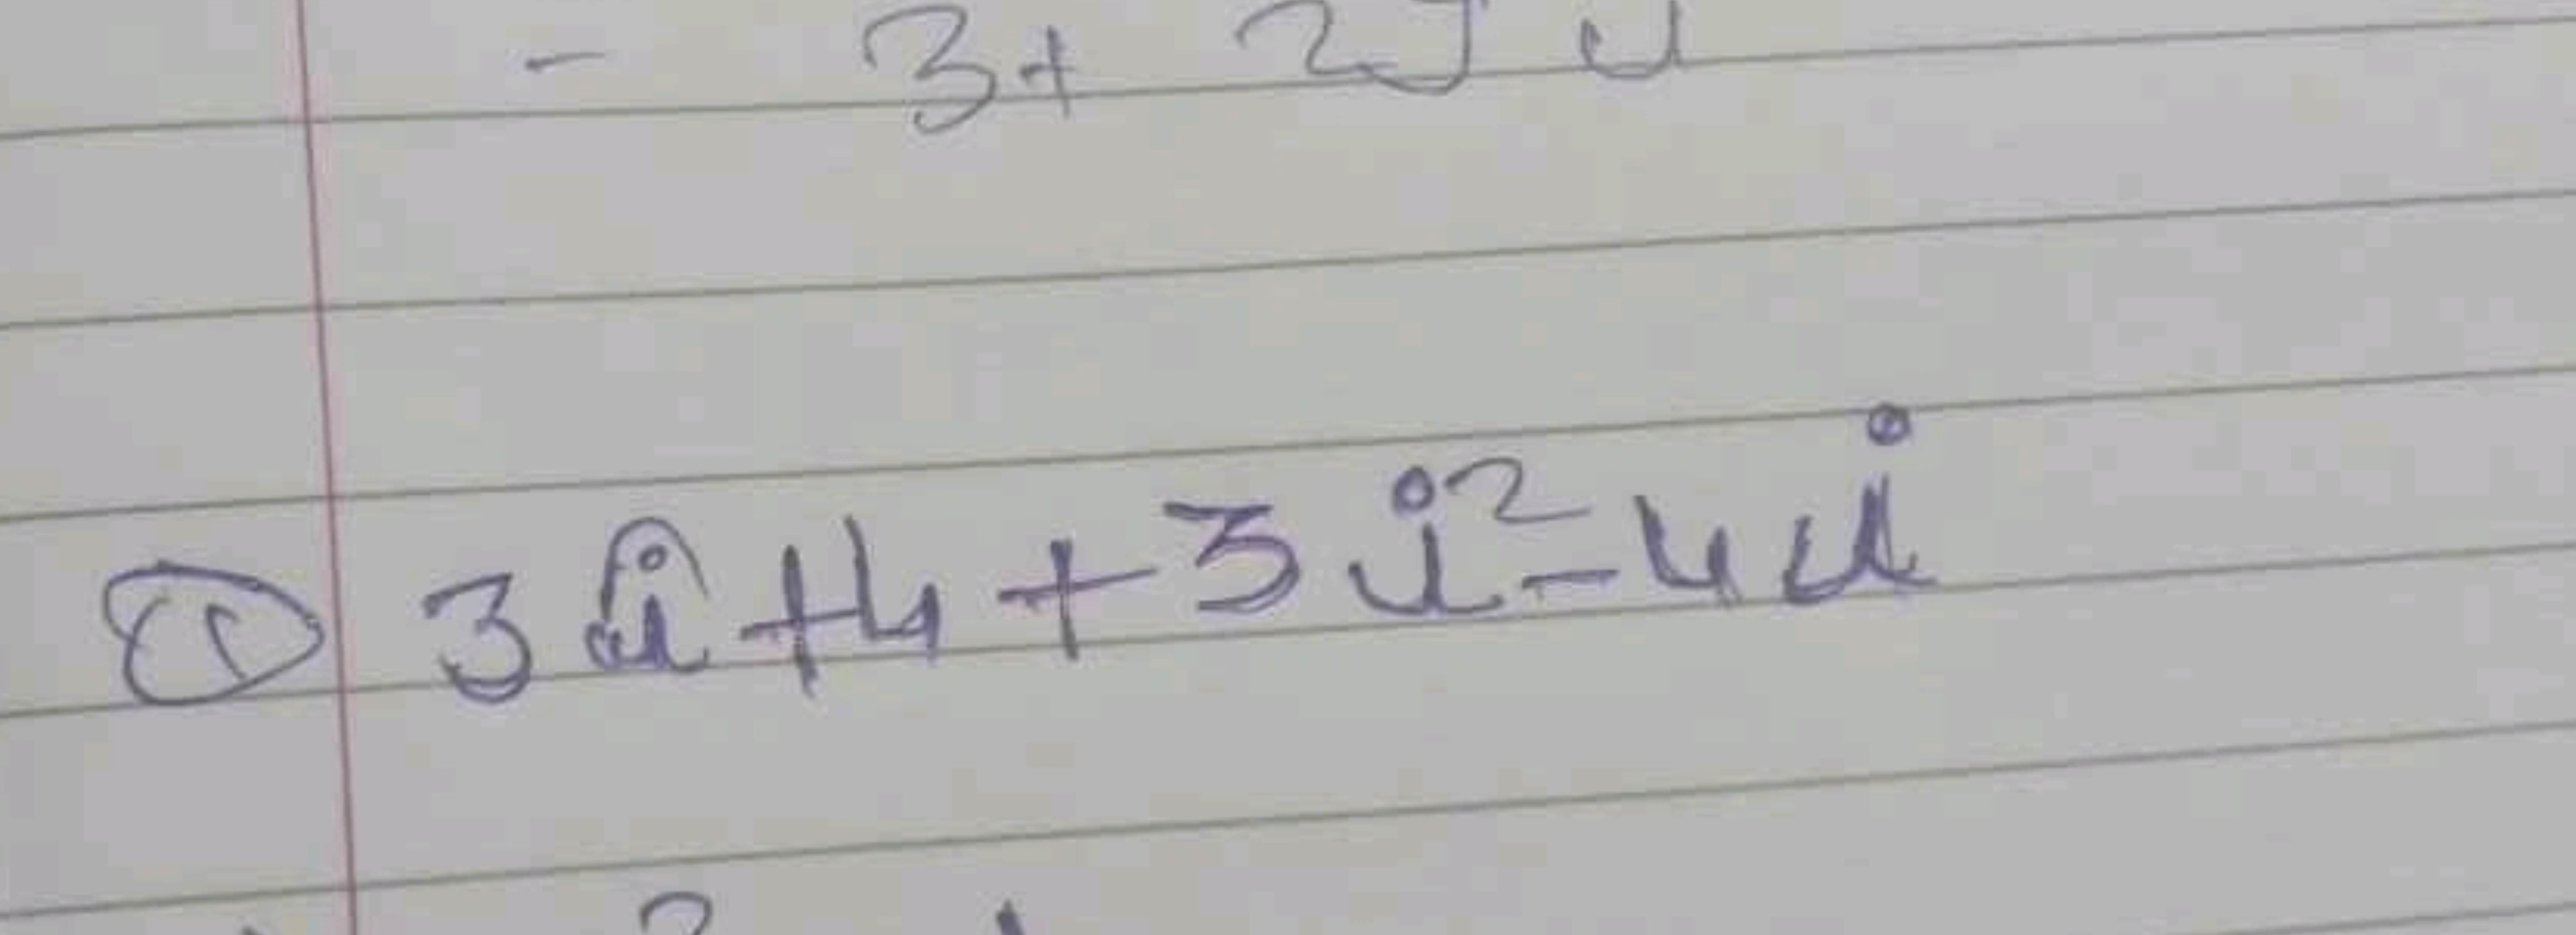 - 3+ 2
① 3i+4+3i²-4i